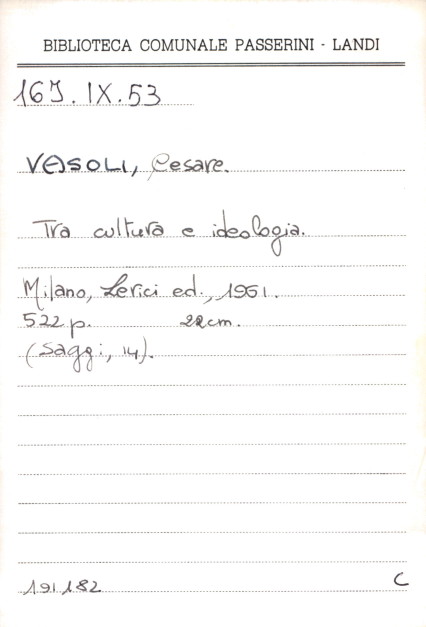 BIBLIOTECA COMUNALE PASSERINI - LANDI
16J. IX. 53
VASOLI, Cesare.
Tra cultura e ideologia.
Milano, Lerici ed., 1961.
522 p. 22cm.
(Saggi, 14).
191182 C